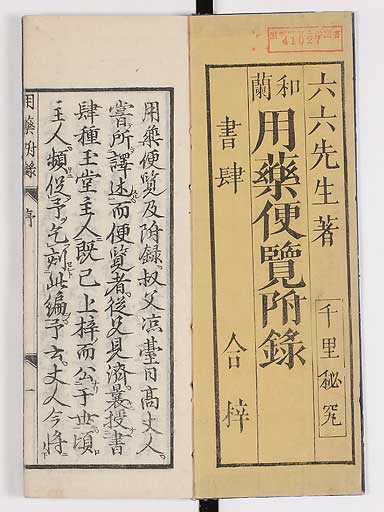 六六先生著
千里秘究
和蘭
用藥便覽附錄
書肆 合梓
41027
用藥便覽及附錄叔父涼臺日高丈人
嘗所譯述而便覽者從兄見濟曩授書
肆種玉堂主人既已上梓而公于世頃
主人頻促予乞刻此編予云丈人今將
用藥附錄 序 一